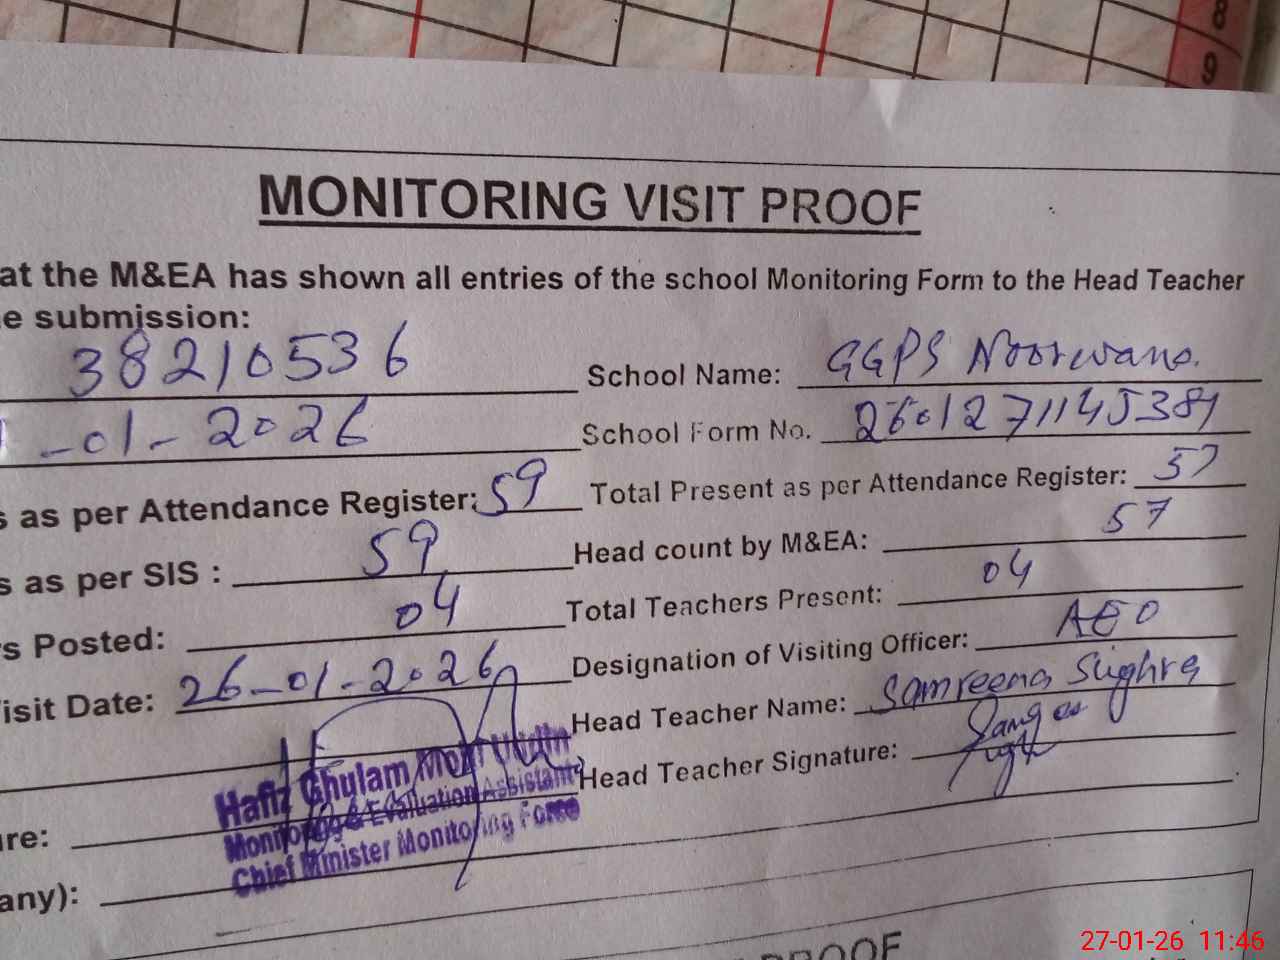 8
9
MONITORING VISIT PROOF
at the M&EA has shown all entries of the school Monitoring Form to the Head Teacher
e submission:
38210536 School Name: GGPS Noorwana.
-01-2026 School Form No. 2601271145384
s as per Attendance Register: 59 Total Present as per Attendance Register: 57
s as per SIS : 59 Head count by M&EA: 57
rs Posted: 04 Total Teachers Present: 04
isit Date: 26-01-2026 Designation of Visiting Officer: AEO
Head Teacher Name: Samreena Sughra
Hafiz Ghulam Moin Uddin Head Teacher Signature:
Monitoring & Evaluation Assistant
re: Chief Minister Monitoring Force
any):
PROOF
27-01-26 11:46